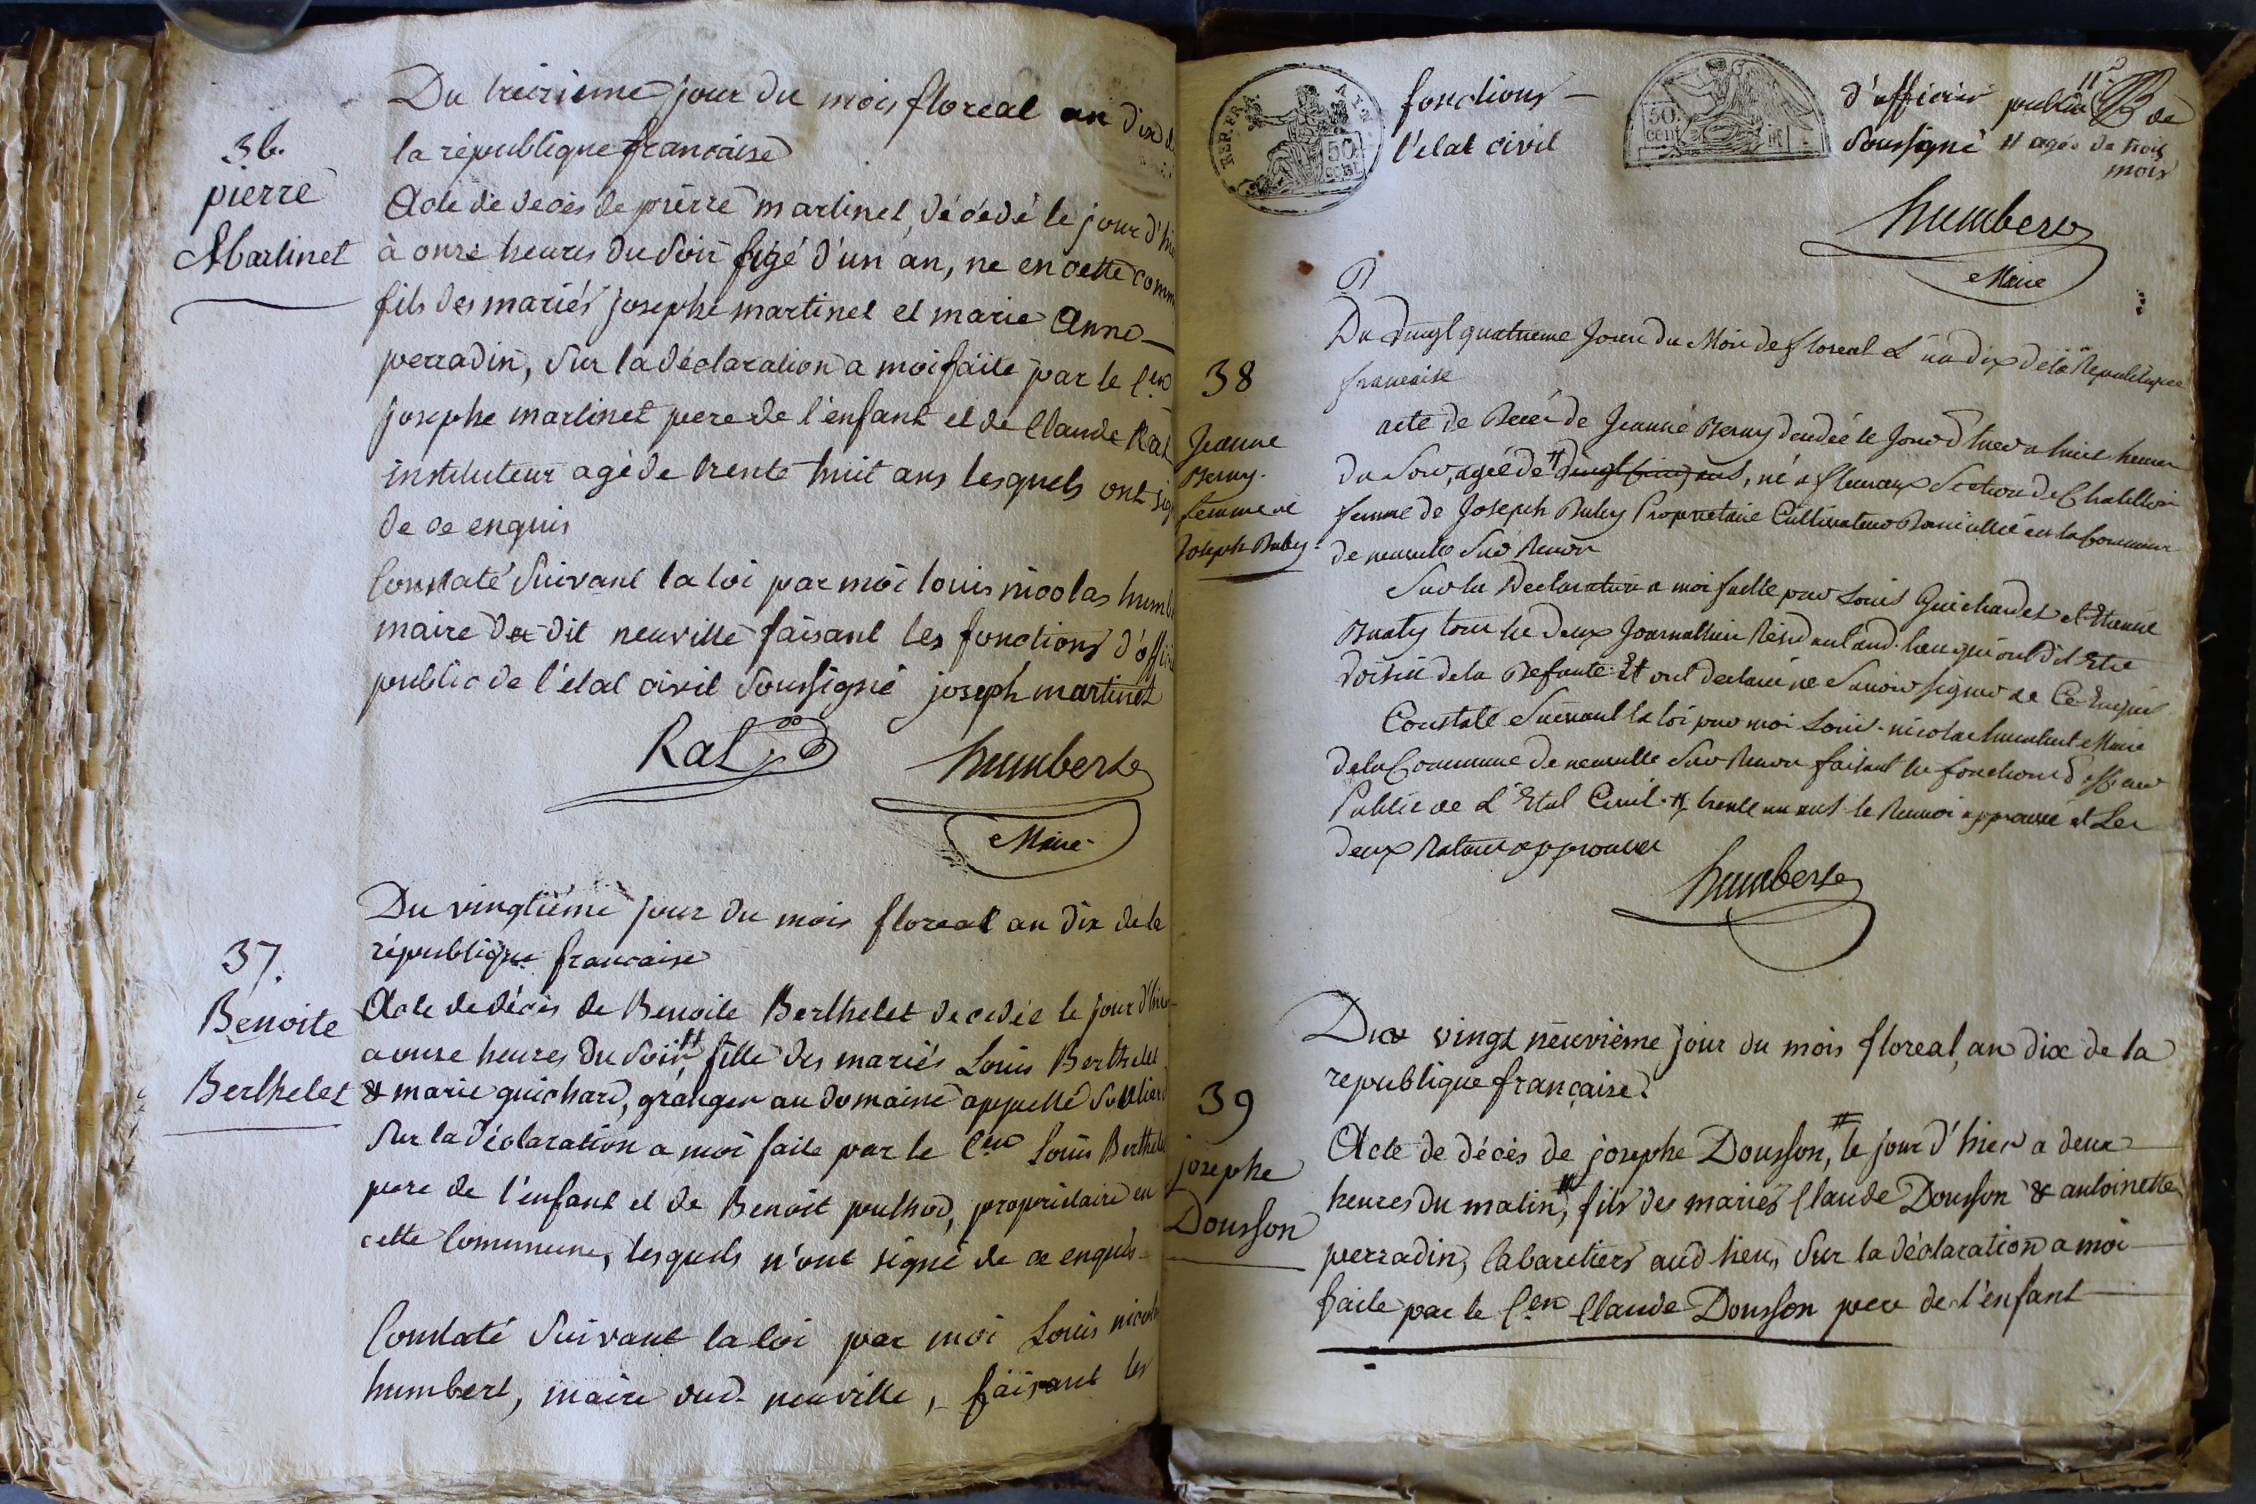 Du treizieme jour du mois floreal an dix de
la république francaise
36.
pierre
Martinet
Acte de décès de pierre martinet, décédé le jour d'hie
à onze heures du soir agé d'un an, né en cette comm
fils des mariés josephe martinet et marie Anne
perradin, sur la déclaration a moi faite par le Cen
josephe martinet pere de l'enfant et de Claude Rat
instituteur agé de trente huit ans lesquels ont sig
de ce enquis
Constaté suivant la loi par moi louis nicolas humb
maire du dit neuville faisant les fonctions d'offici
public de l'état civil soussigné joseph martinet
Rat humbert
Maire
Du vingtiéme jour du mois floreal an dix de la
république francaise
37.
Benoite
Berthelet
Acte de décès de Benoite Berthelet decedée le jour d'hier
a onze heures du soir, # fille des mariés Louis Berthelet
& marie guichard, granger au domaine appellé
sur la déclaration a moi faite par le Cen Louis Berthele
pere de l'enfant et de Benoit proprietaire en
cette Commune, lesquels n'ont signé de ce enquis
Constaté suivant la loi par moi Louis nicola
humbert, maire dud. neuville, faisant les
REP. FRA. 50 CENT.
fonctions
50 cent
d'officier public de
l'etat civil soussigné # agée de trois
mois
humbert
Maire
Du vingt quatrieme Jour du Mois de floreal L'an dix de la Republique
francaise
38
Jeanne
Berny
femme de
Joseph Buby
acte de Decés de Jeanne Berny decedée le Jour d'hier a huit heures
du Soir, agée de # vingt cinq ans, né a fleurieux Section de Chatillon
femme de Joseph Buby Proprietaire Cultivateur Domicillié en la Commune
de neuville Sur Renon
Sur la Declaration a moi faitte par Louis Guichardet et Etienne
tous les deux Journallier Residant aud. lieu qui ont dit Etre
voisin de la Defunte Et ont declaré ne Savoir signer de Ce Enquis
Constaté Suivant la loi par moi Louis nicolas humbert Maire
de la Commune de neuville Sur Renon faisant les fonctions d'officier
Public de L'Etat Civil. # trente un ans le Renvoi approuvé et Les
deux Ratures approuvées
humbert
Du vingt neuvième jour du mois floreal, an dix de la
republique française.
39
josephe
Dousson
Acte de décès de josephe Dousson, # le jour d'hier a deux
heures du matin, # fils des mariés Claude Dousson & antoinette
perradin, Cabaretiers aud. lieu, sur la déclaration a moi
faite par le Cen Claude Dousson pere de l'enfant